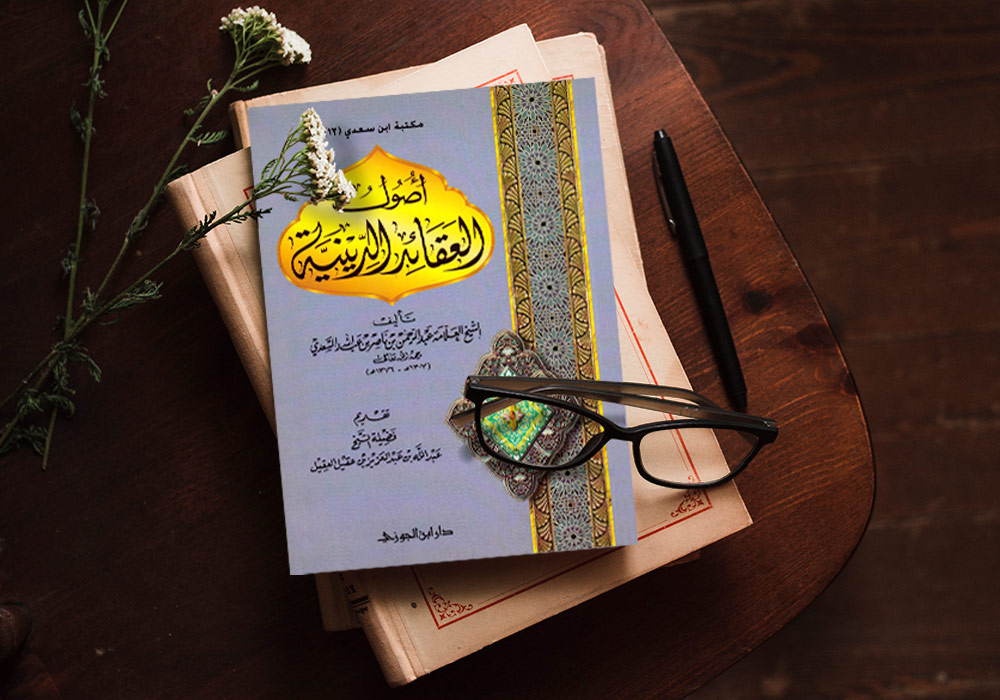 مكتبة ابن سعدي (١٢
أُصُولُ
العَقَائِدِ الدِّينِيَّةِ
تأليف
الشيخ العلامة عبد الرحمن بن ناصر بن عبد الله السعدي
رحمه الله تعالى
(١٣٠٧هـ - ١٣٧٦هـ)
تقديم
فضيلة الشيخ
عبد الله بن عبد العزيز بن عقيل العقيل
دار ابن الجوزي